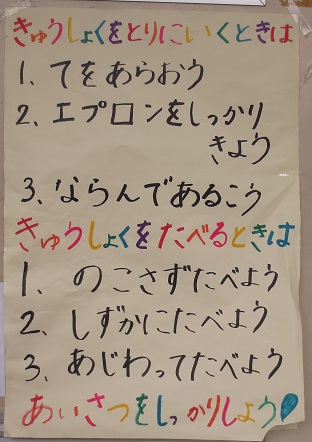 きゅうしょくをとりにいくときは
1. てをあらおう
2. エプロンをしっかり
きよう
3. ならんであるこう
きゅうしょくをたべるときは
1. のこさずたべよう
2. しずかにたべよう
3. あじわってたべよう
あいさつをしっかりしよう